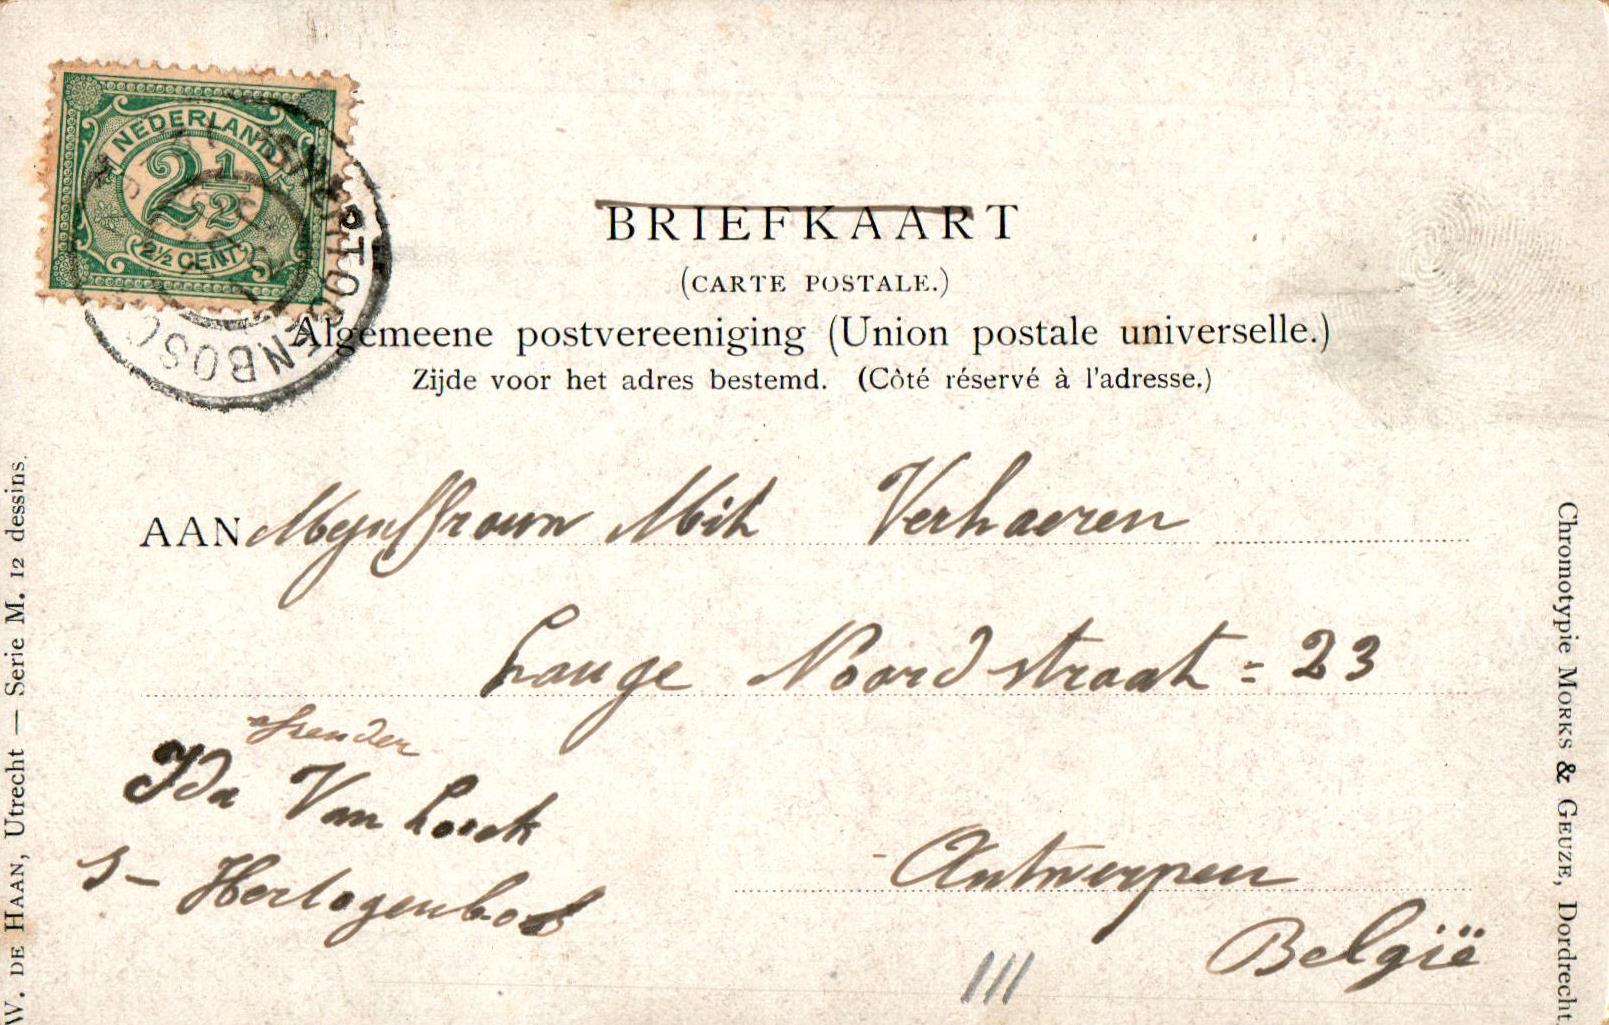 NEDERLAND
2 1/2
2½ CENT
'S HERTOGENBOSCH
BRIEFKAART
(CARTE POSTALE.)
Algemeene postvereeniging (Union postale universelle.)
Zijde voor het adres bestemd. (Côté réservé à l'adresse.)
AAN Mejuffrouw Verhaeren
Lange Noordstraat = 23
afsender
Ida Van Loock
s- Hertogenbos
Antwerpen
België
W. DE HAAN, Utrecht — Serie M. 12 dessins.
Chromotypie MORKS & GEUZE, Dordrecht